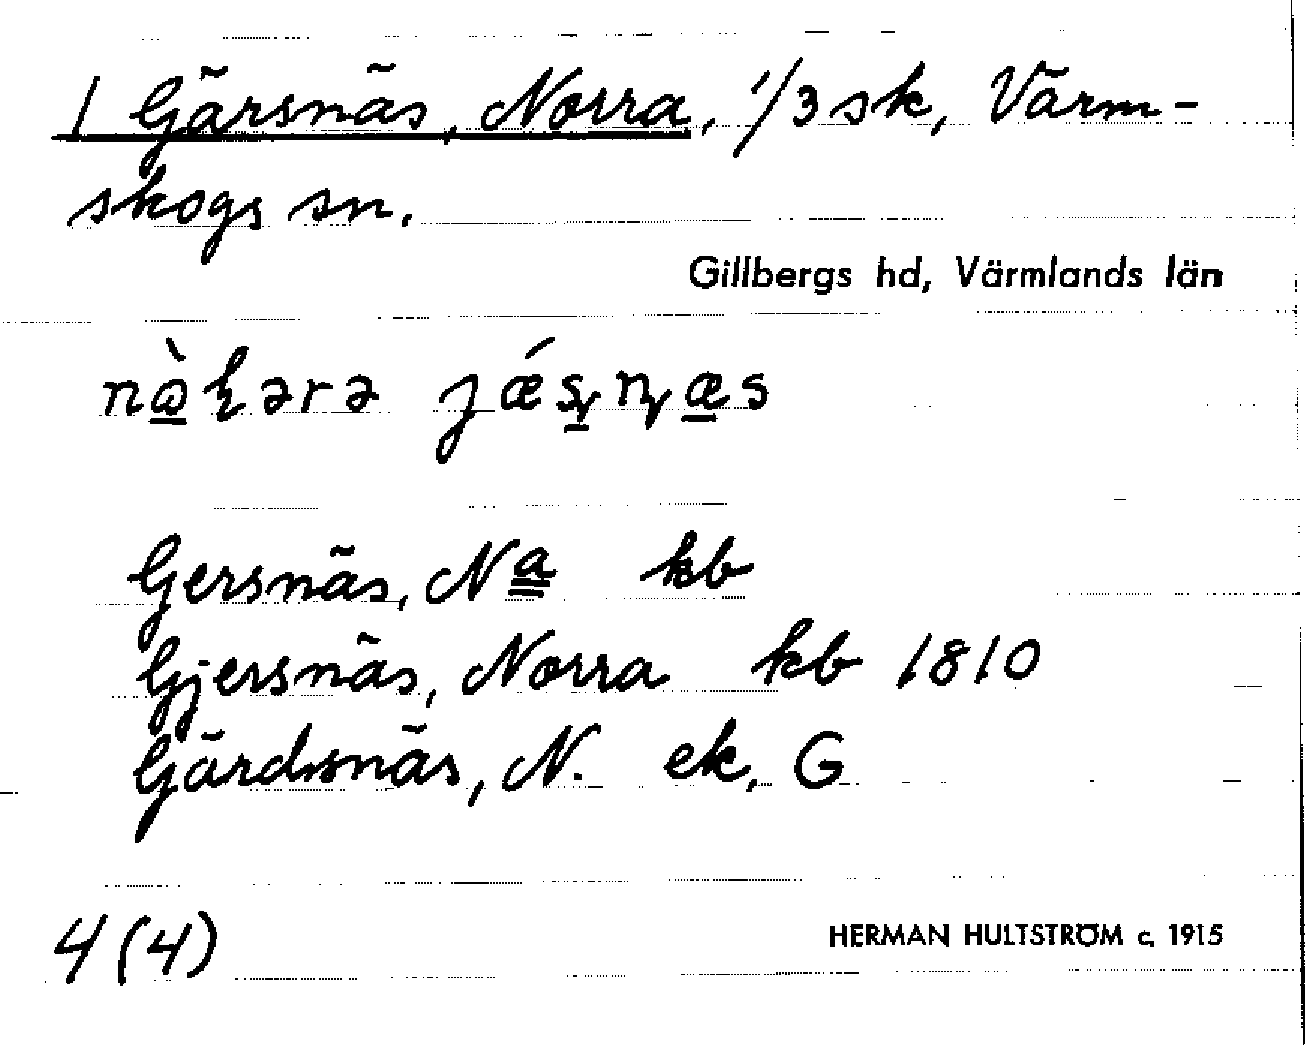 1 Gärsnäs, Norra, 1/3 sk, Värm-
skogs sn.
Gillbergs hd, Värmlands län
Gersnäs, Nᵃ kb
Gjersnäs, Norra kb 1810
Gärdsnäs, N. ek, G
4 (4)
HERMAN HULTSTRÖM c. 1915